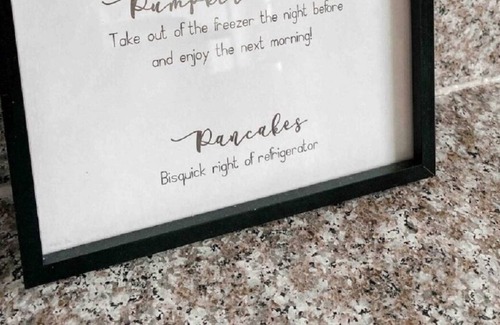 Take out of the freezer the night before
and enjoy the next morning!
Pancakes
Bisquick right of refrigerator